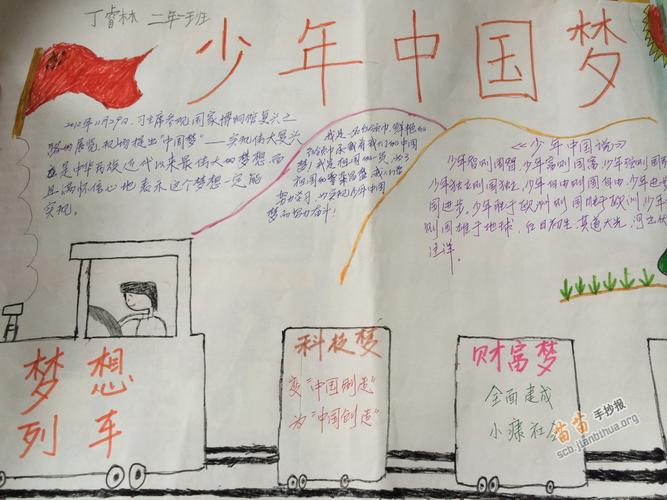 丁睿林 二年一班
少年中国梦
2012年11月29日，习主席参观国家博物馆复兴之
路的展览，现场提出“中国梦”——实现伟大复兴
就是中华民族近代以来最伟大的梦想，而
且满怀信心地表示这个梦想一定能
实现。
我是一名
鲜艳的
中国
梦！我是祖国的一员，为了
祖国的繁荣富强，我们
努力学习，为实现少年中国
梦而努力奋斗！
《少年中国说》
少年智则国智，少年富则国富，少年强则国强
少年独立则国独立，少年自由则国自由，少年进步
国进步，少年胜于欧洲则国胜于欧洲，少年
则国雄于地球，红日初生，其道大光，河出伏
汪洋。
梦想
列车
科技梦
变“中国制造”
为“中国创造”
财富梦
全面建成
小康社会
苗苗手抄报
scb.jianbihua.org